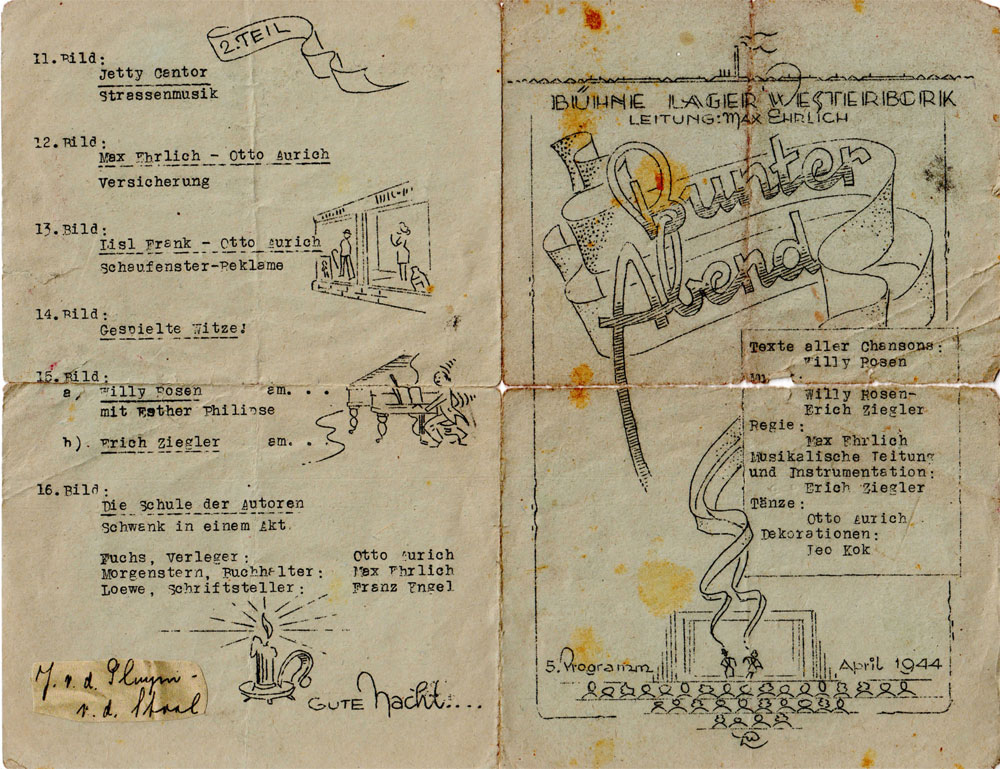 2. TEIL
11.Bild:
Jetty Cantor
Strassenmusik
12.Bild:
Max Ehrlich - Otto Aurich
Versicherung
13.Bild:
Lisl Frank - Otto Aurich
Schaufenster-Reklame
14.Bild:
Gespielte Witze!
15.Bild:
a, Willy Rosen am. . .
mit Esther Philipse
b). Erich Ziegler am. . .
16.Bild:
Die Schule der Autoren
Schwank in einem Akt.
Fuchs, Verleger: Otto Aurich
Morgenstern, Buchhalter: Max Ehrlich
Loewe, Schriftsteller: Franz Engel
J. v. d. Pluym -
v. d. Staal
GUTE Nacht....
BÜHNE LAGER WESTERBORK
LEITUNG: MAX EHRLICH
Bunter
Abend
Texte aller Chansons:
Willy Rosen
Willy Rosen-
Erich Ziegler
Regie:
Max Ehrlich
Musikalische Leitung
und Instrumentation:
Erich Ziegler
Tänze:
Otto Aurich
Dekorationen:
Leo Kok
5. Programm April 1944